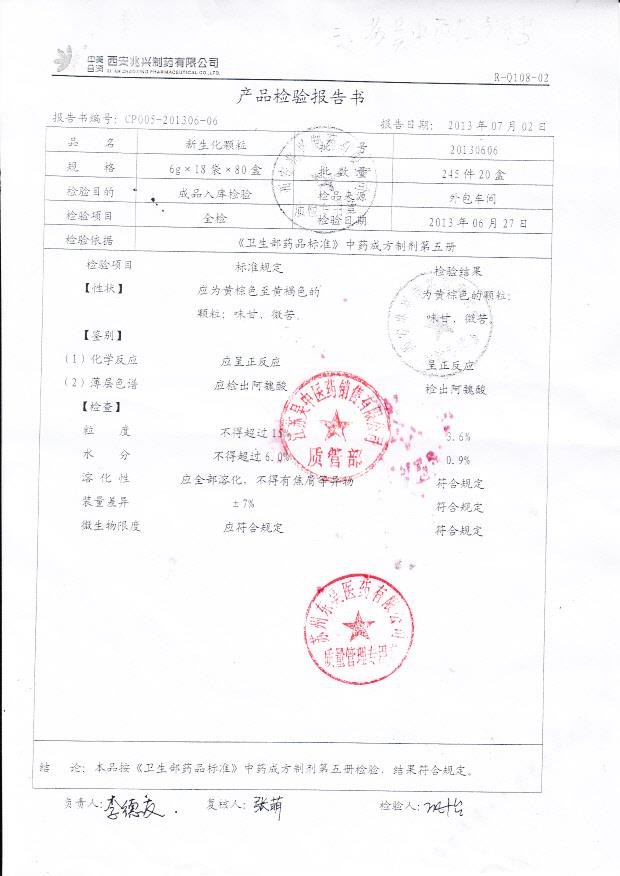 中美合资 西安兆兴制药有限公司
XI'AN ZHAOXING PHARMACEUTICAL CO.,LTD.
R-Q108-02
产品检验报告书
报告书编号: CP005-201306-06 报告日期: 2013年07月02日
品 名 新生化颗粒 批 号 20130606
规 格 6g×18袋×80盒 批数量 245件20盒
检验目的 成品入库检验 检品来源 外包车间
检验项目 全检 检验日期 2013年06月27日
检验依据 《卫生部药品标准》中药成方制剂第五册
检验项目 标准规定 检验结果
【性状】 应为黄棕色至黄褐色的 为黄棕色的颗粒;
颗粒; 味甘、微苦. 味甘、微苦
【鉴别】
(1)化学反应 应呈正反应 呈正反应
(2)薄层色谱 应检出阿魏酸 检出阿魏酸
【检查】
粒 度 不得超过15% 3.6%
水 分 不得超过6.0% 0.9%
溶化性 应全部溶化,不得有焦屑等异物 符合规定
装量差异 ±7% 符合规定
微生物限度 应符合规定 符合规定
江苏吴中医药销售有限公司
质管部
苏州东吴医药有限公司
质量管理专用章
结 论: 本品按《卫生部药品标准》中药成方制剂第五册检验, 结果符合规定。
负责人: 李德友. 复核人: 张萌 检验人: